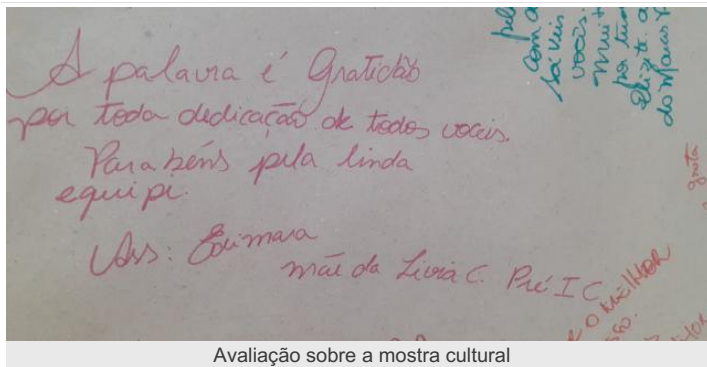 A palavra é Gratidão
por toda dedicação de todos voceis.
Parabéns pela linda
equipe.
Ass: Edimara
mãe da Livia C. Pré I C.
com a
voceis.
por tu
do Mara
grata
O MELHOR
Avaliação sobre a mostra cultural